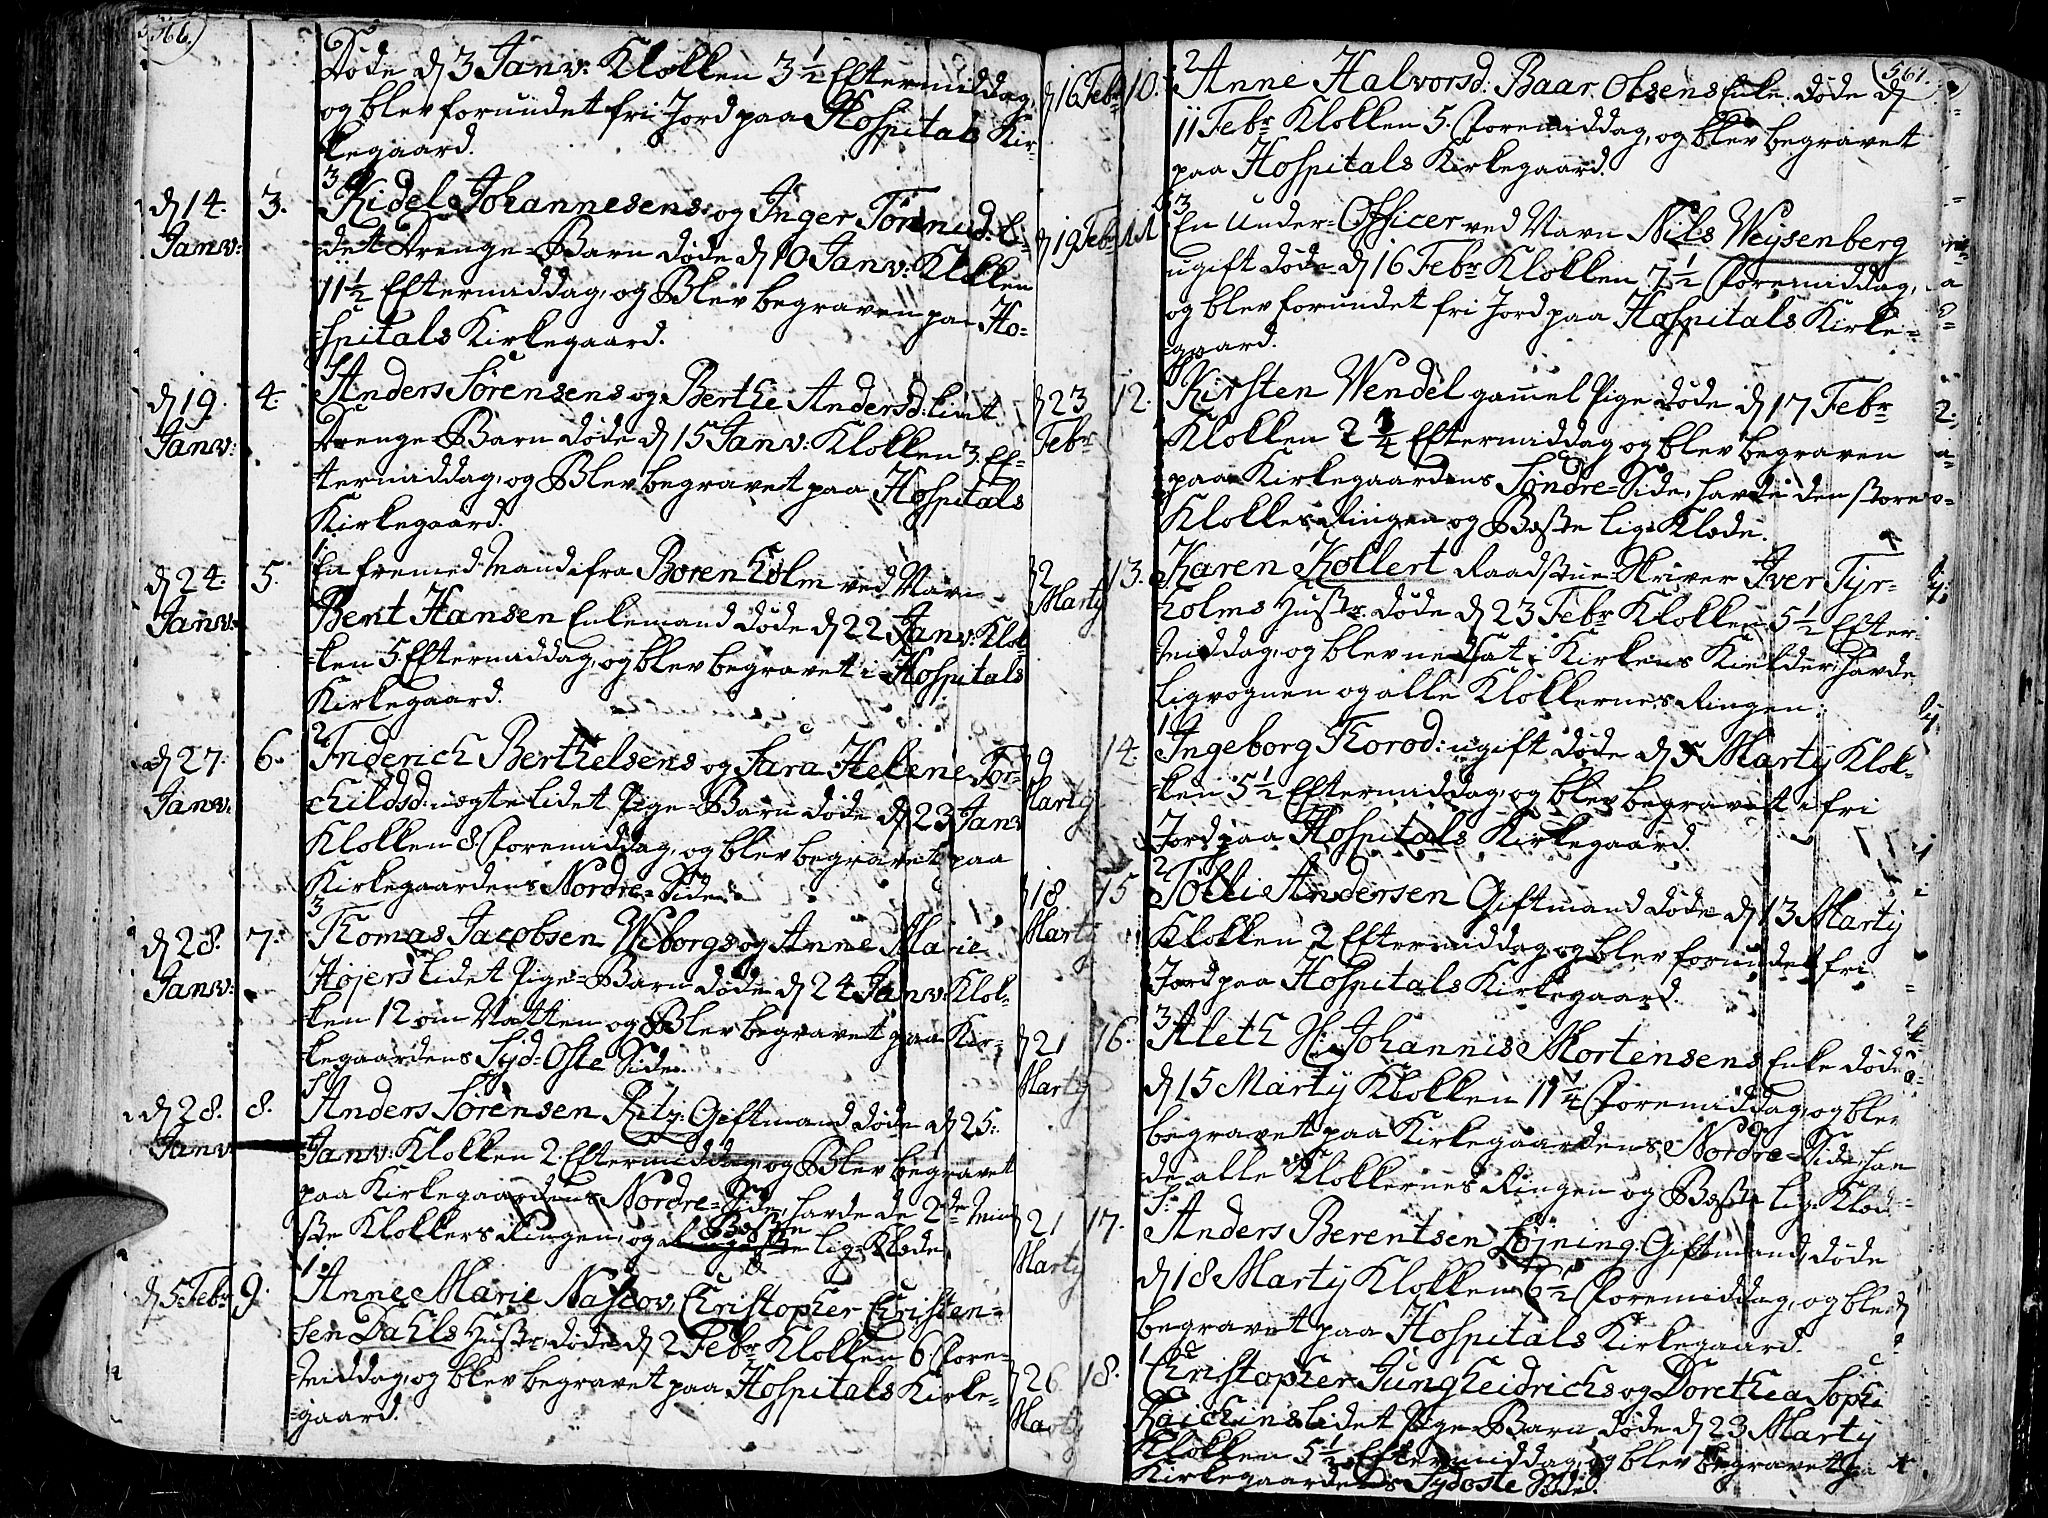 566.
Døde d 3 Janv: Klokken 3 1/2 Eftermiddag,
og blev forundet fri Jord paa Hospitals Kir-
kegaard.
d 14. Janv: 3. Kidel Johannesens og Inger Tönnisd: li-
det Drenge-Barn døde d 10 Janv: Klokken
11 1/2 Eftermiddag, og Blev begraven paa Ho-
spitals Kirkegaard.
d 19. Janv: 4. Anders Sørensens og Berthe Andersd. lint
Drenge-Barn døde d 15 Janv: Klokken 3. Ef-
termiddag, og Blev begravet paa Hospitals
Kirkegaard.
d 24. Janv: 5. En fremed Mand fra Borenholm ved Navn
Bent Hansen Enkemand døde d 22 Janv: Klok-
ken 5. Eftermiddag, og blev begravet i Hospitals
Kirkegaard.
d 27. Janv: 6. Friderich Berthelsens og Sara Helene Tor-
childsd: ægte lidet Pige-Barn døde d 23 Janv
Klokken 8 Formiddag, og blev begravet paa
Kirkegaardens Nordre-Side.
d 28. Janv: 7. Thomas Jacobsen Wiborgs og Anne Marie
Højers lidet Pige-Barn døde d 24 Janv: Klok-
ken 12 om Natten og Blev begravet paa Kir-
kegaardens Syd-Oste Side.
d 28. Janv 8. Anders Sørensen Ritz: Giftmand døde d 25.
Janv: Klokken 2 Eftermiddag, og Blev begravet
paa Kirkegaardens Nordre-Side, havde de 2de Min-
ste Klokkers Ringen, og Beste lig-Klæde.
d 5 Febr 9. Anne Marie Nascov, Christopher Christen-
sen Dahls Hustr: døde d 2 Febr Klokken 6. Fore-
middag, og blev begravet paa Hospitals Kirke-
gaard.
567.
d 16 Febr 10. Anne Halvorsd: Baar Olsens Enke døde d
11 Febr Klokken 5. Foremiddag, og blev begravet
paa Hospitals Kirkegaard.
d 19 Febr 11 En Under-Officer ved Navn Nils Weysenberg
ugift døde d 16 Febr Klokken 7 1/2 Foremiddag,
og blev forundet fri Jord paa Hospitals Kirke-
gaard.
d 23 Febr 12. Kirsten Wendel gamel Pige døde d 17 Febr
Klokken 2 3/4 Eftermiddag og blev begraven
paa Kirkegaardens Søndre-Side, havde den store
Klokkes Ringen og Beste lig-Klæde.
d 2 Marty 13. Karen Kollert Raadstue-Skriver Iver Tyr-
holms Hustr: døde d 23 Febr Klokken 5 1/2 Efter-
middag, og blev nedsat i Kirkens Kielder, havde
Ligvognen og alle Klokkernes Ringen.
d 9 Marty 14. Ingeborg Thorod: ugift døde d 5 Marty Klok-
ken 5 1/2 Eftermiddag, og blev begravet i fri
Jord paa Hospitals Kirkegaard.
d 18 Marty 15 Tölli Andersen Giftmand døde d 13 Marty
Klokken 2 Eftermiddag og blev forundet fri
Jord paa Hospitals Kirkegaard.
d 21 Marty 16. Aleth Hr. Johannis Mortensens Enke døde
d 15 Marty Klokken 11 1/4 Foremiddag, og blev
begravet paa Kirkegaardens Nordre-Side, hav-
de alle Klokkernes Ringen og Beste lig-Klæde.
d 21 Marty 17. Anders Berentsen Löjning. Giftmand døde
d 18 Marty Klokken 6 1/2 Foremiddag, og blev
begravet paa Hospitals Kirkegaard.
d 26 Marty 18. Christopher Jungheidrichs og Dorethea Sophi
lidet Pige-Barn døde d 23 Marty
Klokken 5 1/2 Eftermiddag, og blev begravet paa
Kirkegaardens Sydoste Side.